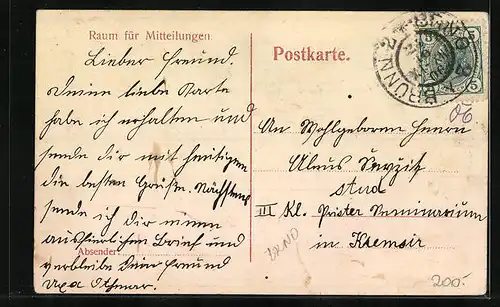 Raum für Mitteilungen.
Postkarte.
BRÜNN 2
BRNO
5
Lieber Freund.
Deine liebe Karte
habe ich erhalten und
sende dir mit heutigem
die besten Grüße. Nächstens
sende ich dir einen
ausführlichen Brief und
verbleibe Dein Freund
Othmar.
Absender:
06
An Wohlgeboren Herrn
stud
III Kl. Prister Seminarium
in Kremsir
BRNO
200.-